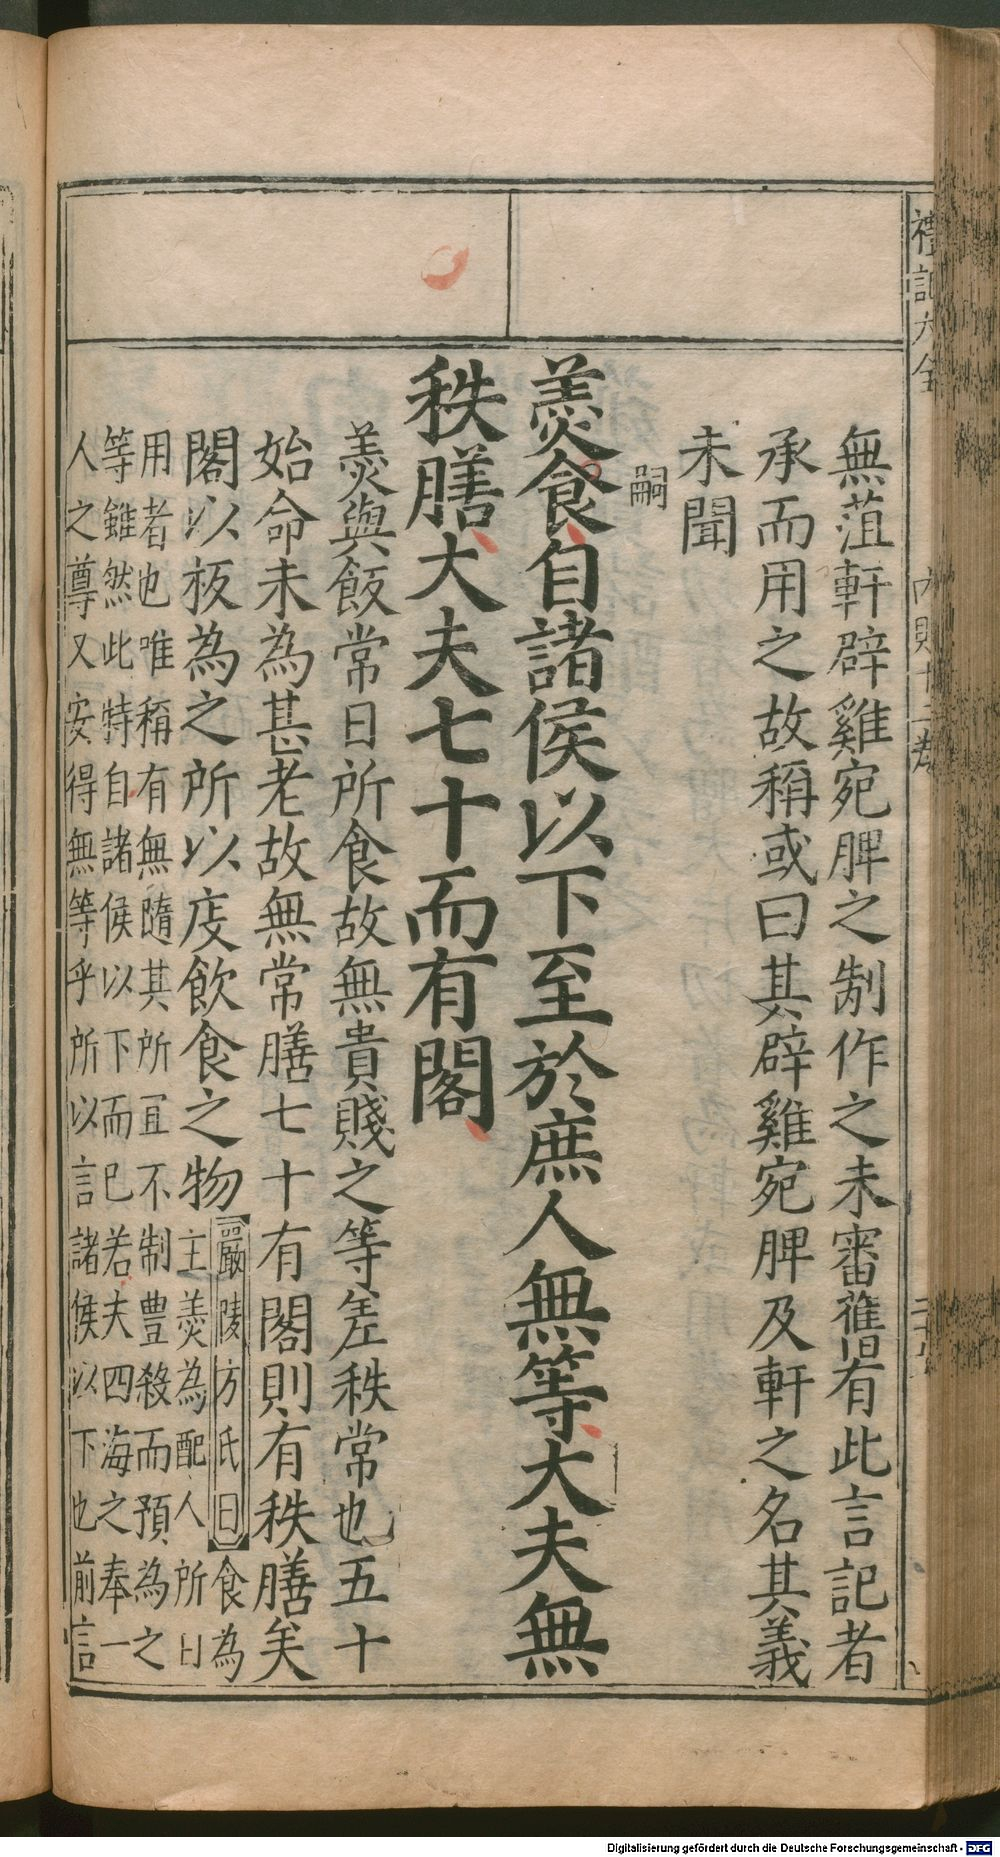 禮記大全 內則十二卷
無菹軒辟雞宛脾之制作之未審舊有此言記者
承而用之故稱或曰其辟雞宛脾及軒之名其義
未聞
嗣
羮食自諸侯以下至於庶人無等大夫無
秩膳大夫七十而有閣
羮與飯常日所食故無貴賤之等差秩常也五十
始命未為甚老故無常膳七十有閣則有秩膳矣
閣以板為之所以庋飲食之物
嚴陵方氏曰食為
主羮為配人所日
用者也唯稱有無隨其所宜不制豊殺而預為之
等雖然此特自諸侯以下而已若夫四海之奉一
人之尊又安得無等乎所以言諸侯以下也前言
Digitalisierung gefördert durch die Deutsche Forschungsgemeinschaft - DFG